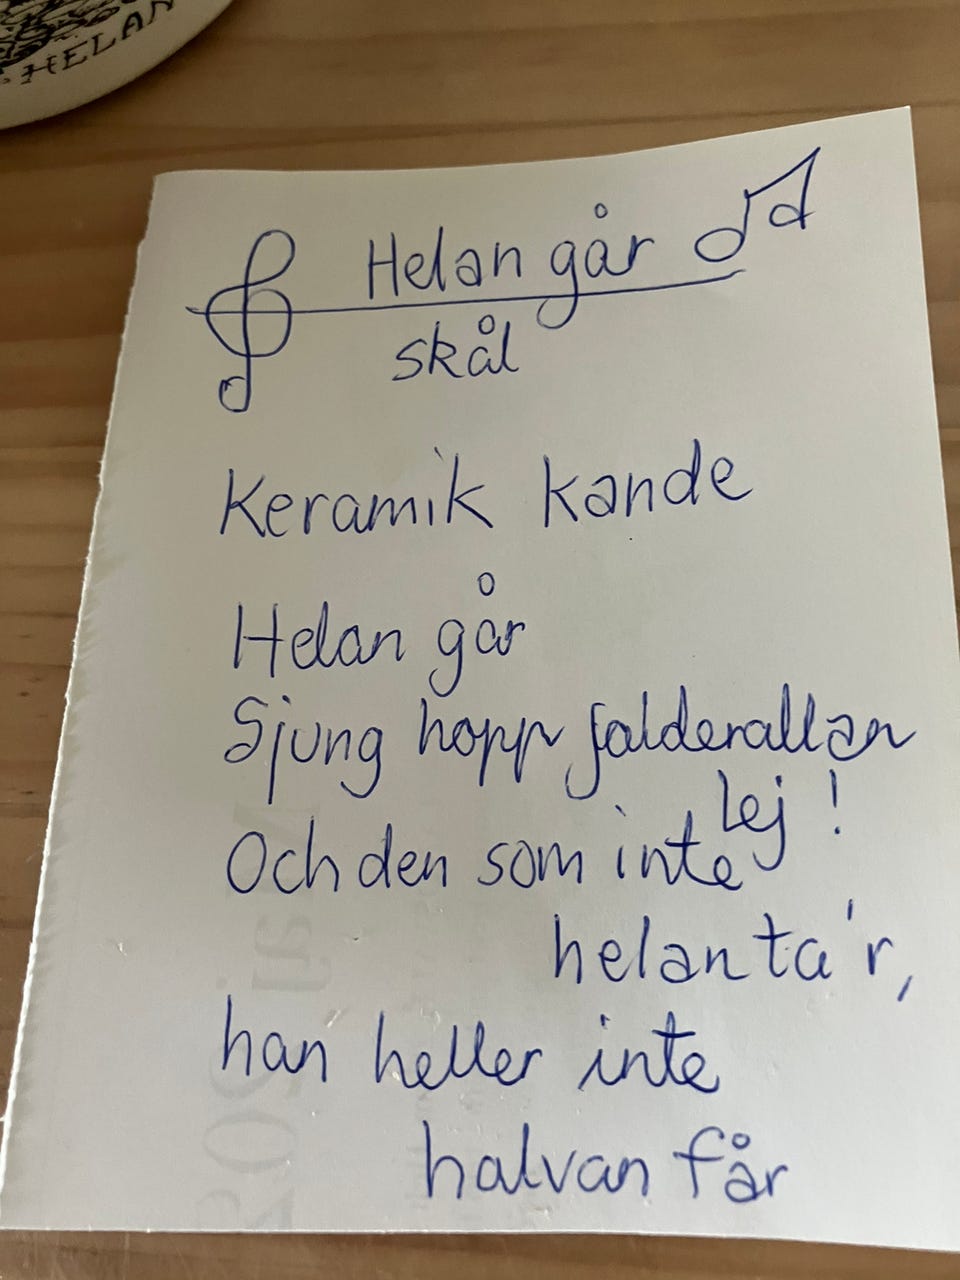 HELAN
Helan går
skål
Keramik kande
Helan går
Sjung hopp falderallan
lej!
Och den som inte
helan ta'r,
han heller inte
halvan får